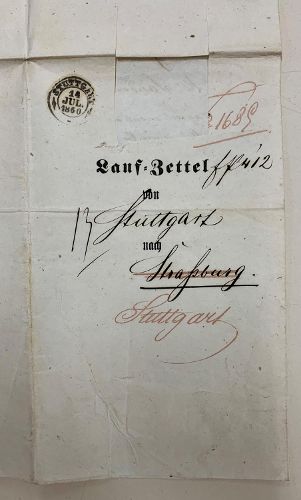 STUTTGART
14
JUL.
1860
1685
Lauf-Zettel 412
von
13 Stuttgart
nach
Straßburg.
Stuttgart